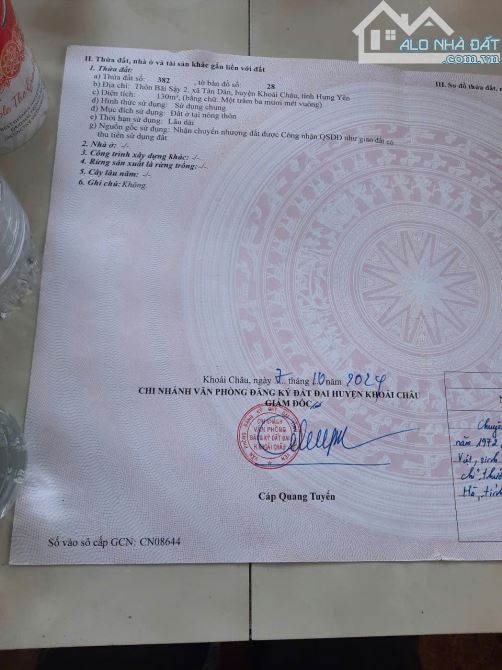 ALO NHÀ ĐẤT
.com.vn
II. Thửa đất, nhà ở và tài sản khác gắn liền với đất
III. Sơ đồ thửa đất, nhà
1. Thửa đất:
a) Thửa đất số: 382 tờ bản đồ số: 28
b) Địa chỉ: Thôn Bãi Sậy 2, xã Tân Dân, huyện Khoái Châu, tỉnh Hưng Yên
c) Diện tích: 130m², (bằng chữ: Một trăm ba mươi mét vuông)
d) Hình thức sử dụng: Sử dụng chung
đ) Mục đích sử dụng: Đất ở tại nông thôn
e) Thời hạn sử dụng: Lâu dài
g) Nguồn gốc sử dụng: Nhận chuyển nhượng đất được Công nhận QSDĐ như giao đất có
thu tiền sử dụng đất
2. Nhà ở: -/-
3. Công trình xây dựng khác: -/-
4. Rừng sản xuất là rừng trồng: -/-
5. Cây lâu năm: -/-
6. Ghi chú: Không.
Khoái Châu, ngày 7 tháng 10 năm 2024
CHI NHÁNH VĂN PHÒNG ĐĂNG KÝ ĐẤT ĐAI HUYỆN KHOÁI CHÂU
GIÁM ĐỐC
CHI NHÁNH
VĂN PHÒNG
ĐĂNG KÝ ĐẤT ĐAI
H. KHOÁI CHÂU
Chuyể
năm 1972
Vát, sinh
chỉ thườ
Hà, tỉnh
Cáp Quang Tuyến
Số vào sổ cấp GCN: CN08644